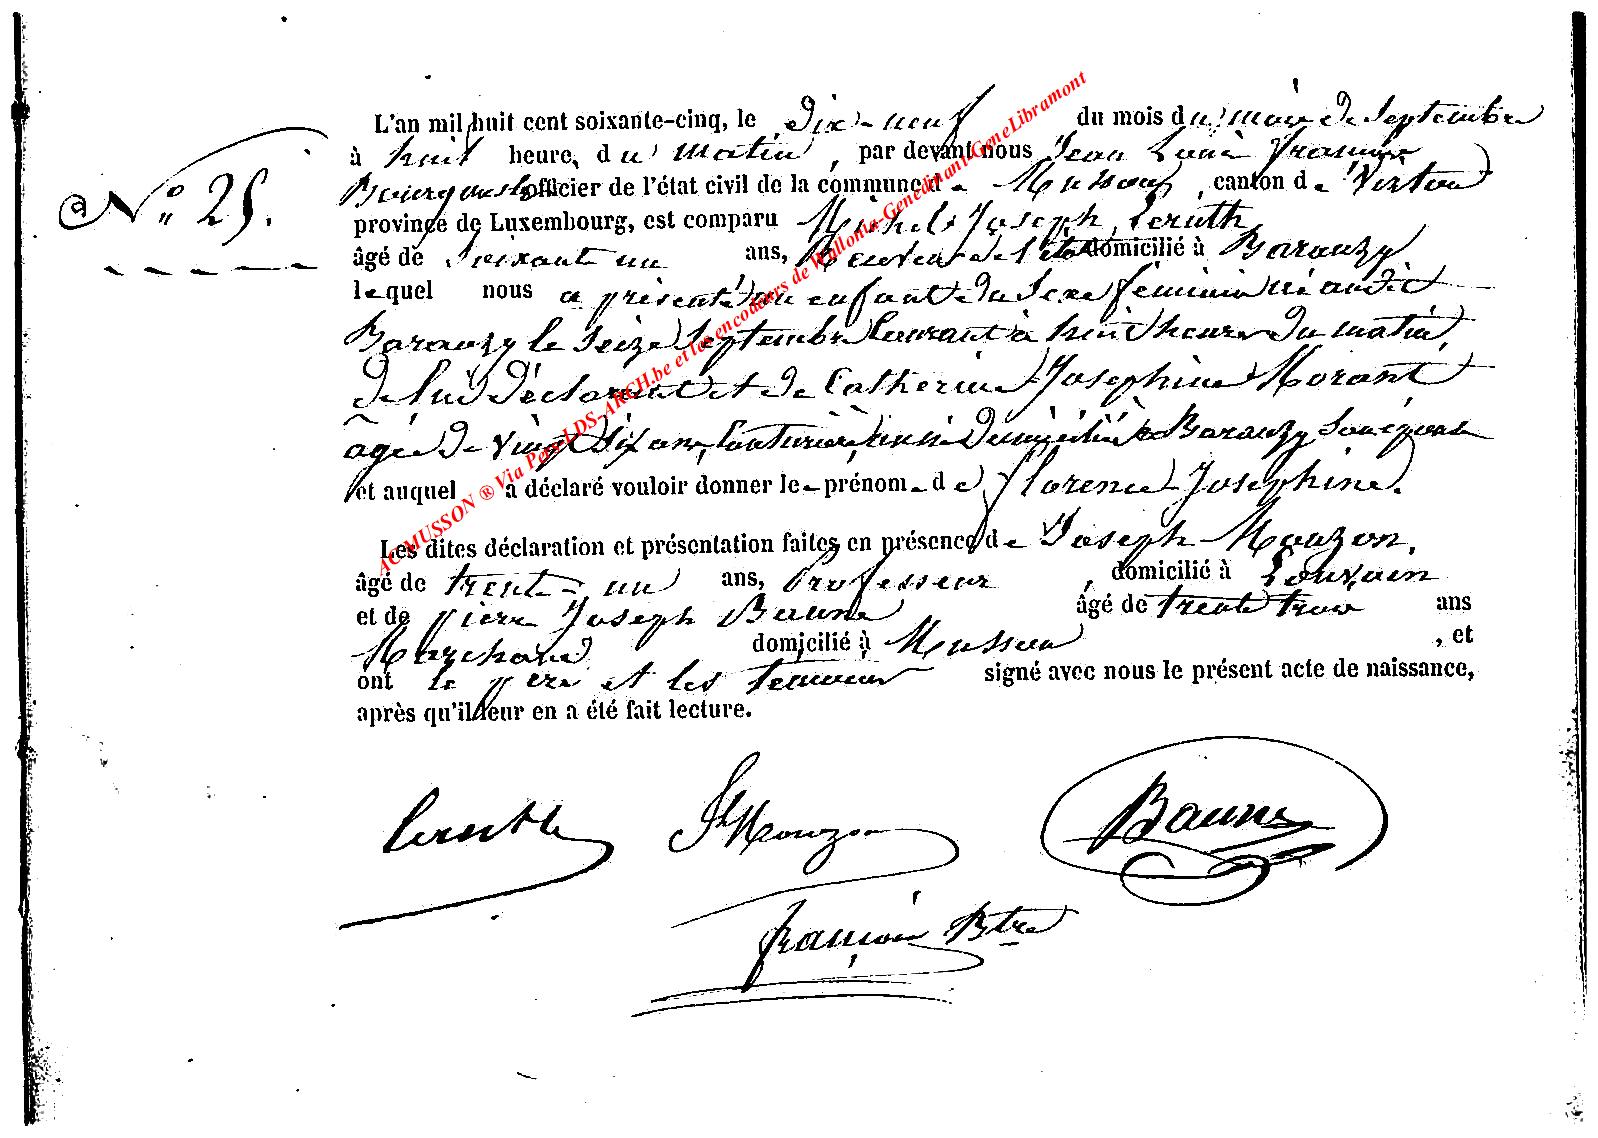 L'an mil huit cent soixante-cinq, le dix-neuf du mois du mois de Septembre
à huit heure, du matin, par devant nous Jean Louis François
Bourgmestre officier de l'état civil de la commune de Musson, canton de Virton
N° 25.
province de Luxembourg, est comparu Michel Joseph Leruth
âgé de Soixante un ans, domicilié à Baranzy
lequel nous a présenté un enfant du Sexe féminin né audit
Baranzy le Seize Septembre Courant à huit heures du matin,
de lui déclarant et de Catherine Josephine Morant
âgée de vingt dix ans, Couturière, aussi domiciliée à Baranzy Son épouse
et auquel a déclaré vouloir donner le prénom de Florence Josephine.
Les dites déclaration et présentation faites en présence de Joseph Mouzon,
âgé de trente-un ans, Professeur, domicilié à Louvain
et de pierre Joseph Baune âgé de trente trois ans
Marchand domicilié à Musson, et
ont le père et les temoins signé avec nous le présent acte de naissance,
après qu'il leur en a été fait lecture.
Leruth Jh Mouzon Baune
François Btre
ACMUSSON ® Via Pere LDS-ARCH.be et les encodeurs de Wallonia-Genedinant-GeneLibramont